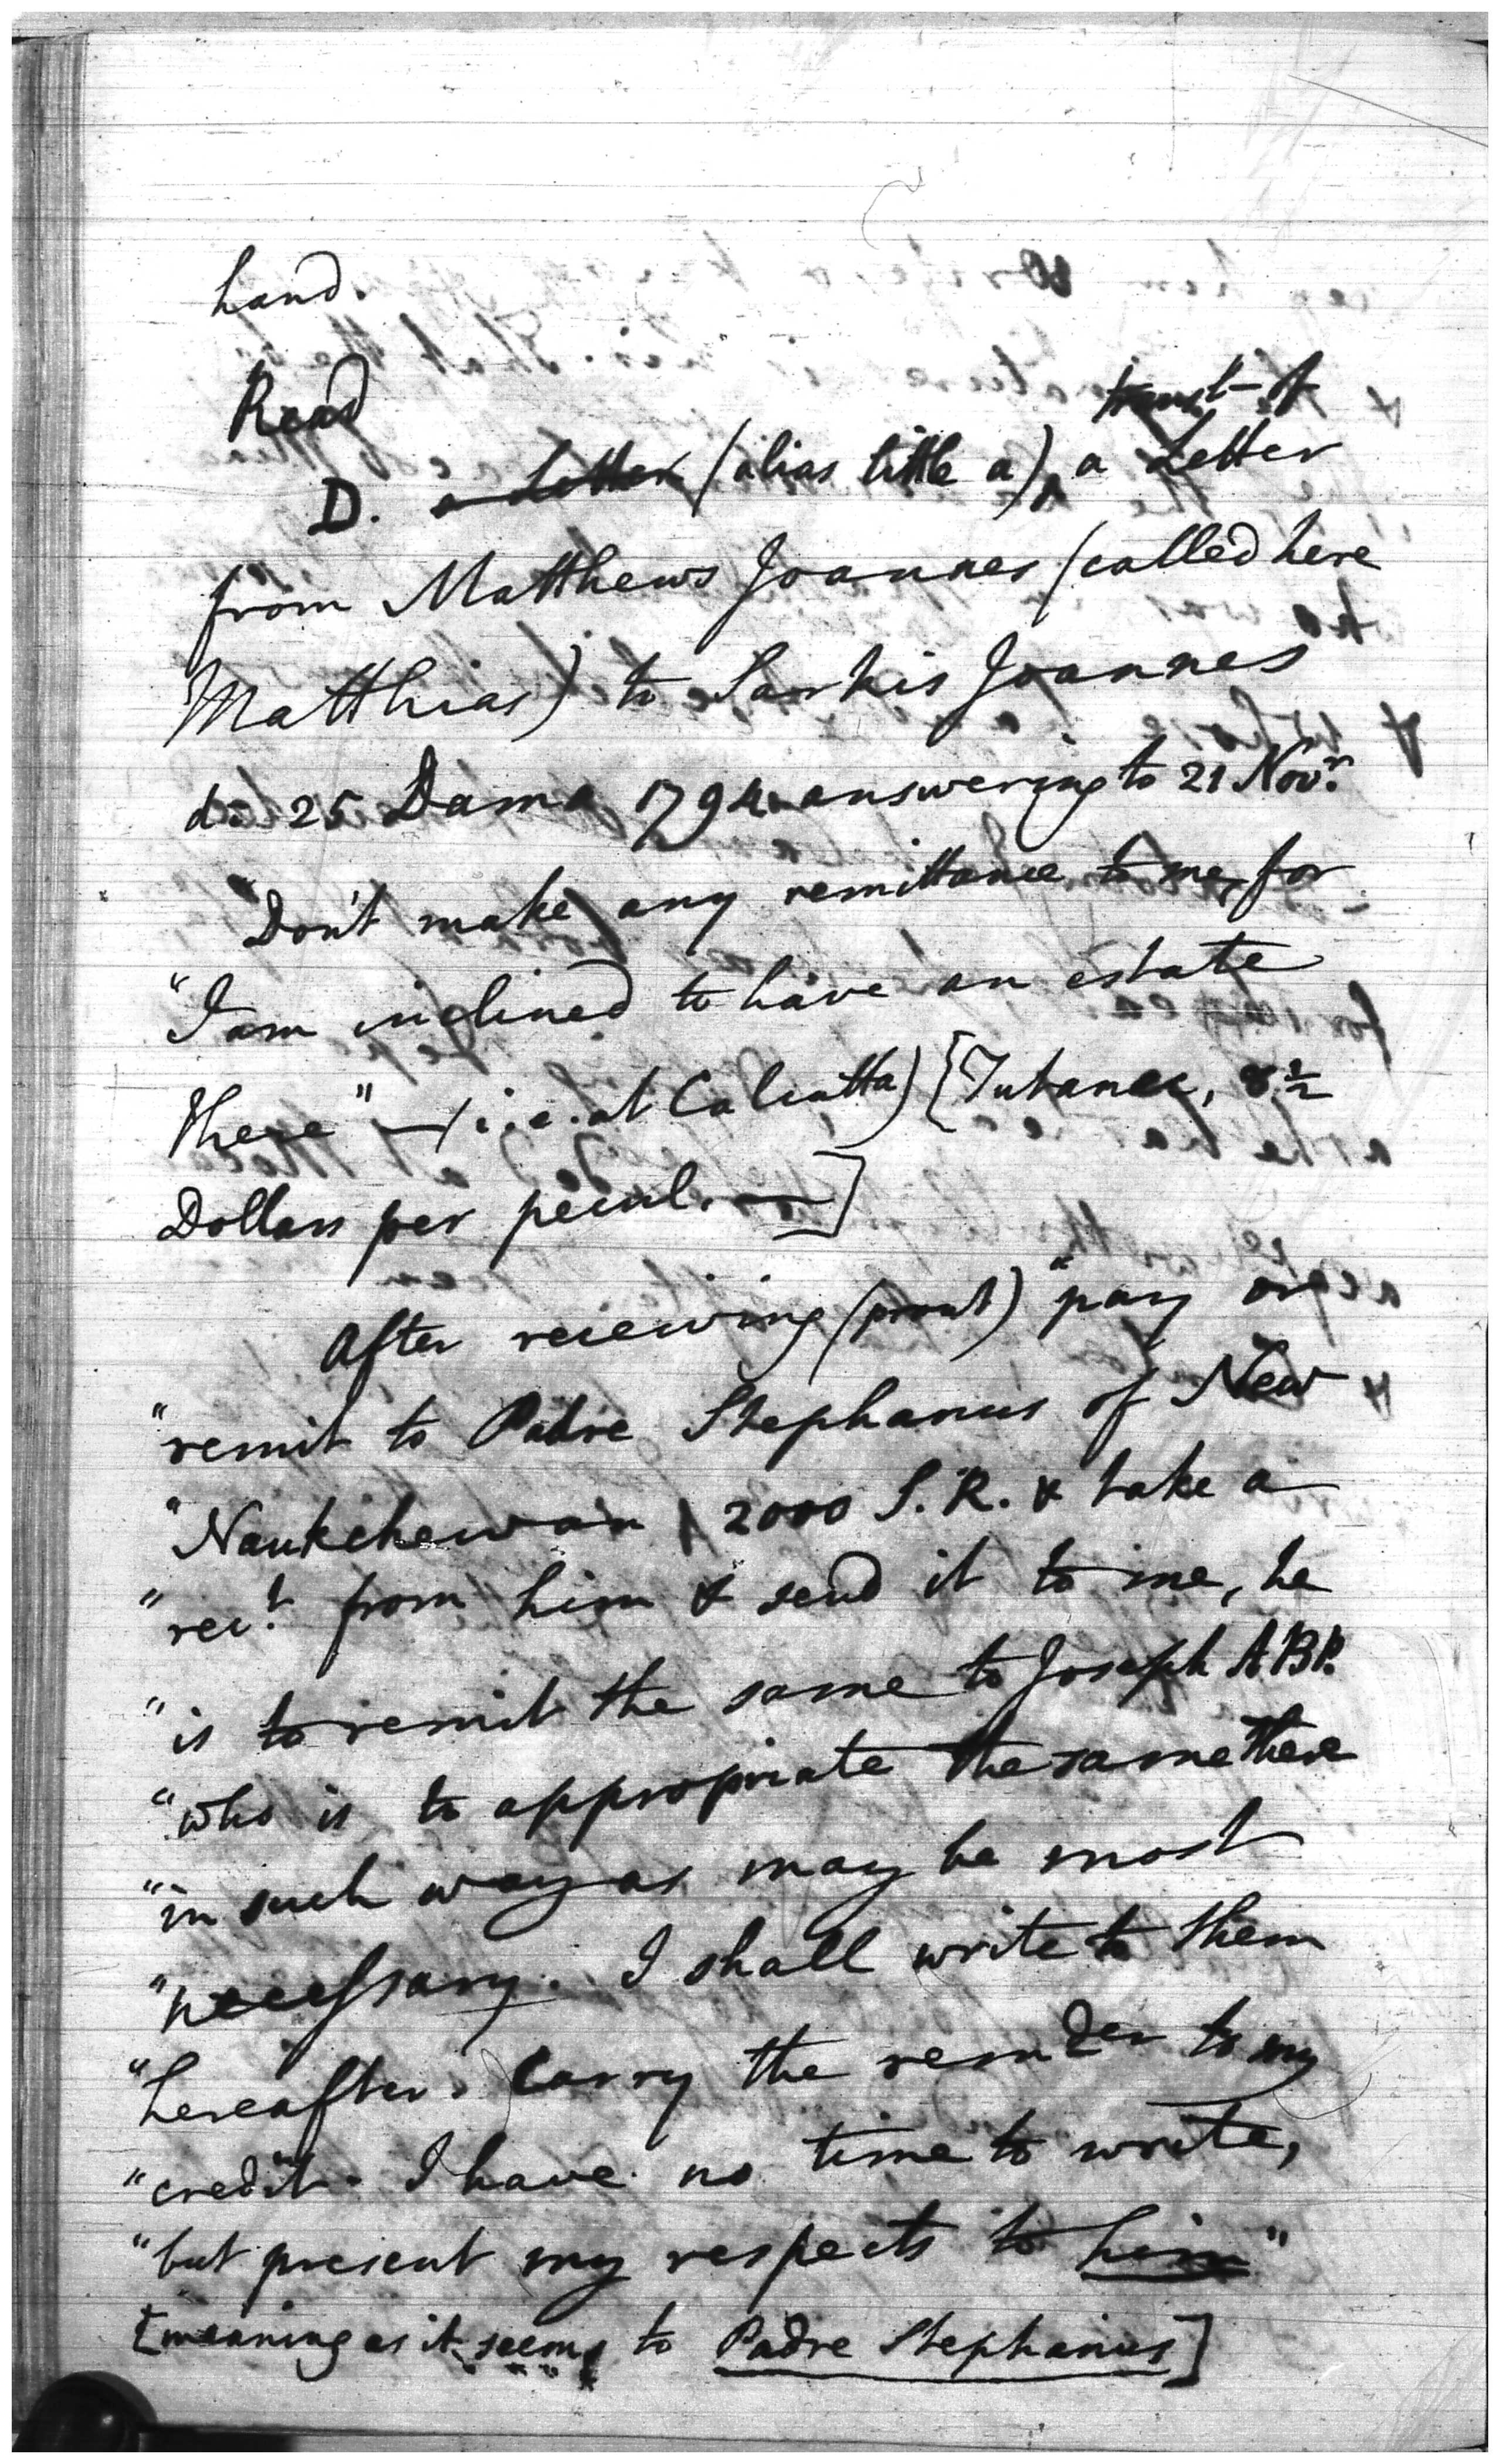 hand.
Read
transl. of
D. a Letter (alias little a) ^ a Letter
from Matthews Joannes (called here
Matthias) to Sarkis Joannes
d. 25 Dama 1794 answering to 21 Novr.
"Don't make any remittance to me, for
"I am inclined to have an estate
there" — (i.e. at Calcutta) [Tutanec, 8½
Dollars per pecul. —]
After receiving (prout) "pay or
"remit to Padre Stephanus of New
"Naukchewan 2000 S.R. & take a
"rect. from him & send it to me, he
"is to remit the same to Joseph ABP.
"who is to appropriate the same there
"in such way as may be most
"necessary. I shall write to them
"hereafter. Carry the remder to my
"credit. I have no time to write,
"but present my respects to him"
[meaning as it seems to Padre Stephanus]